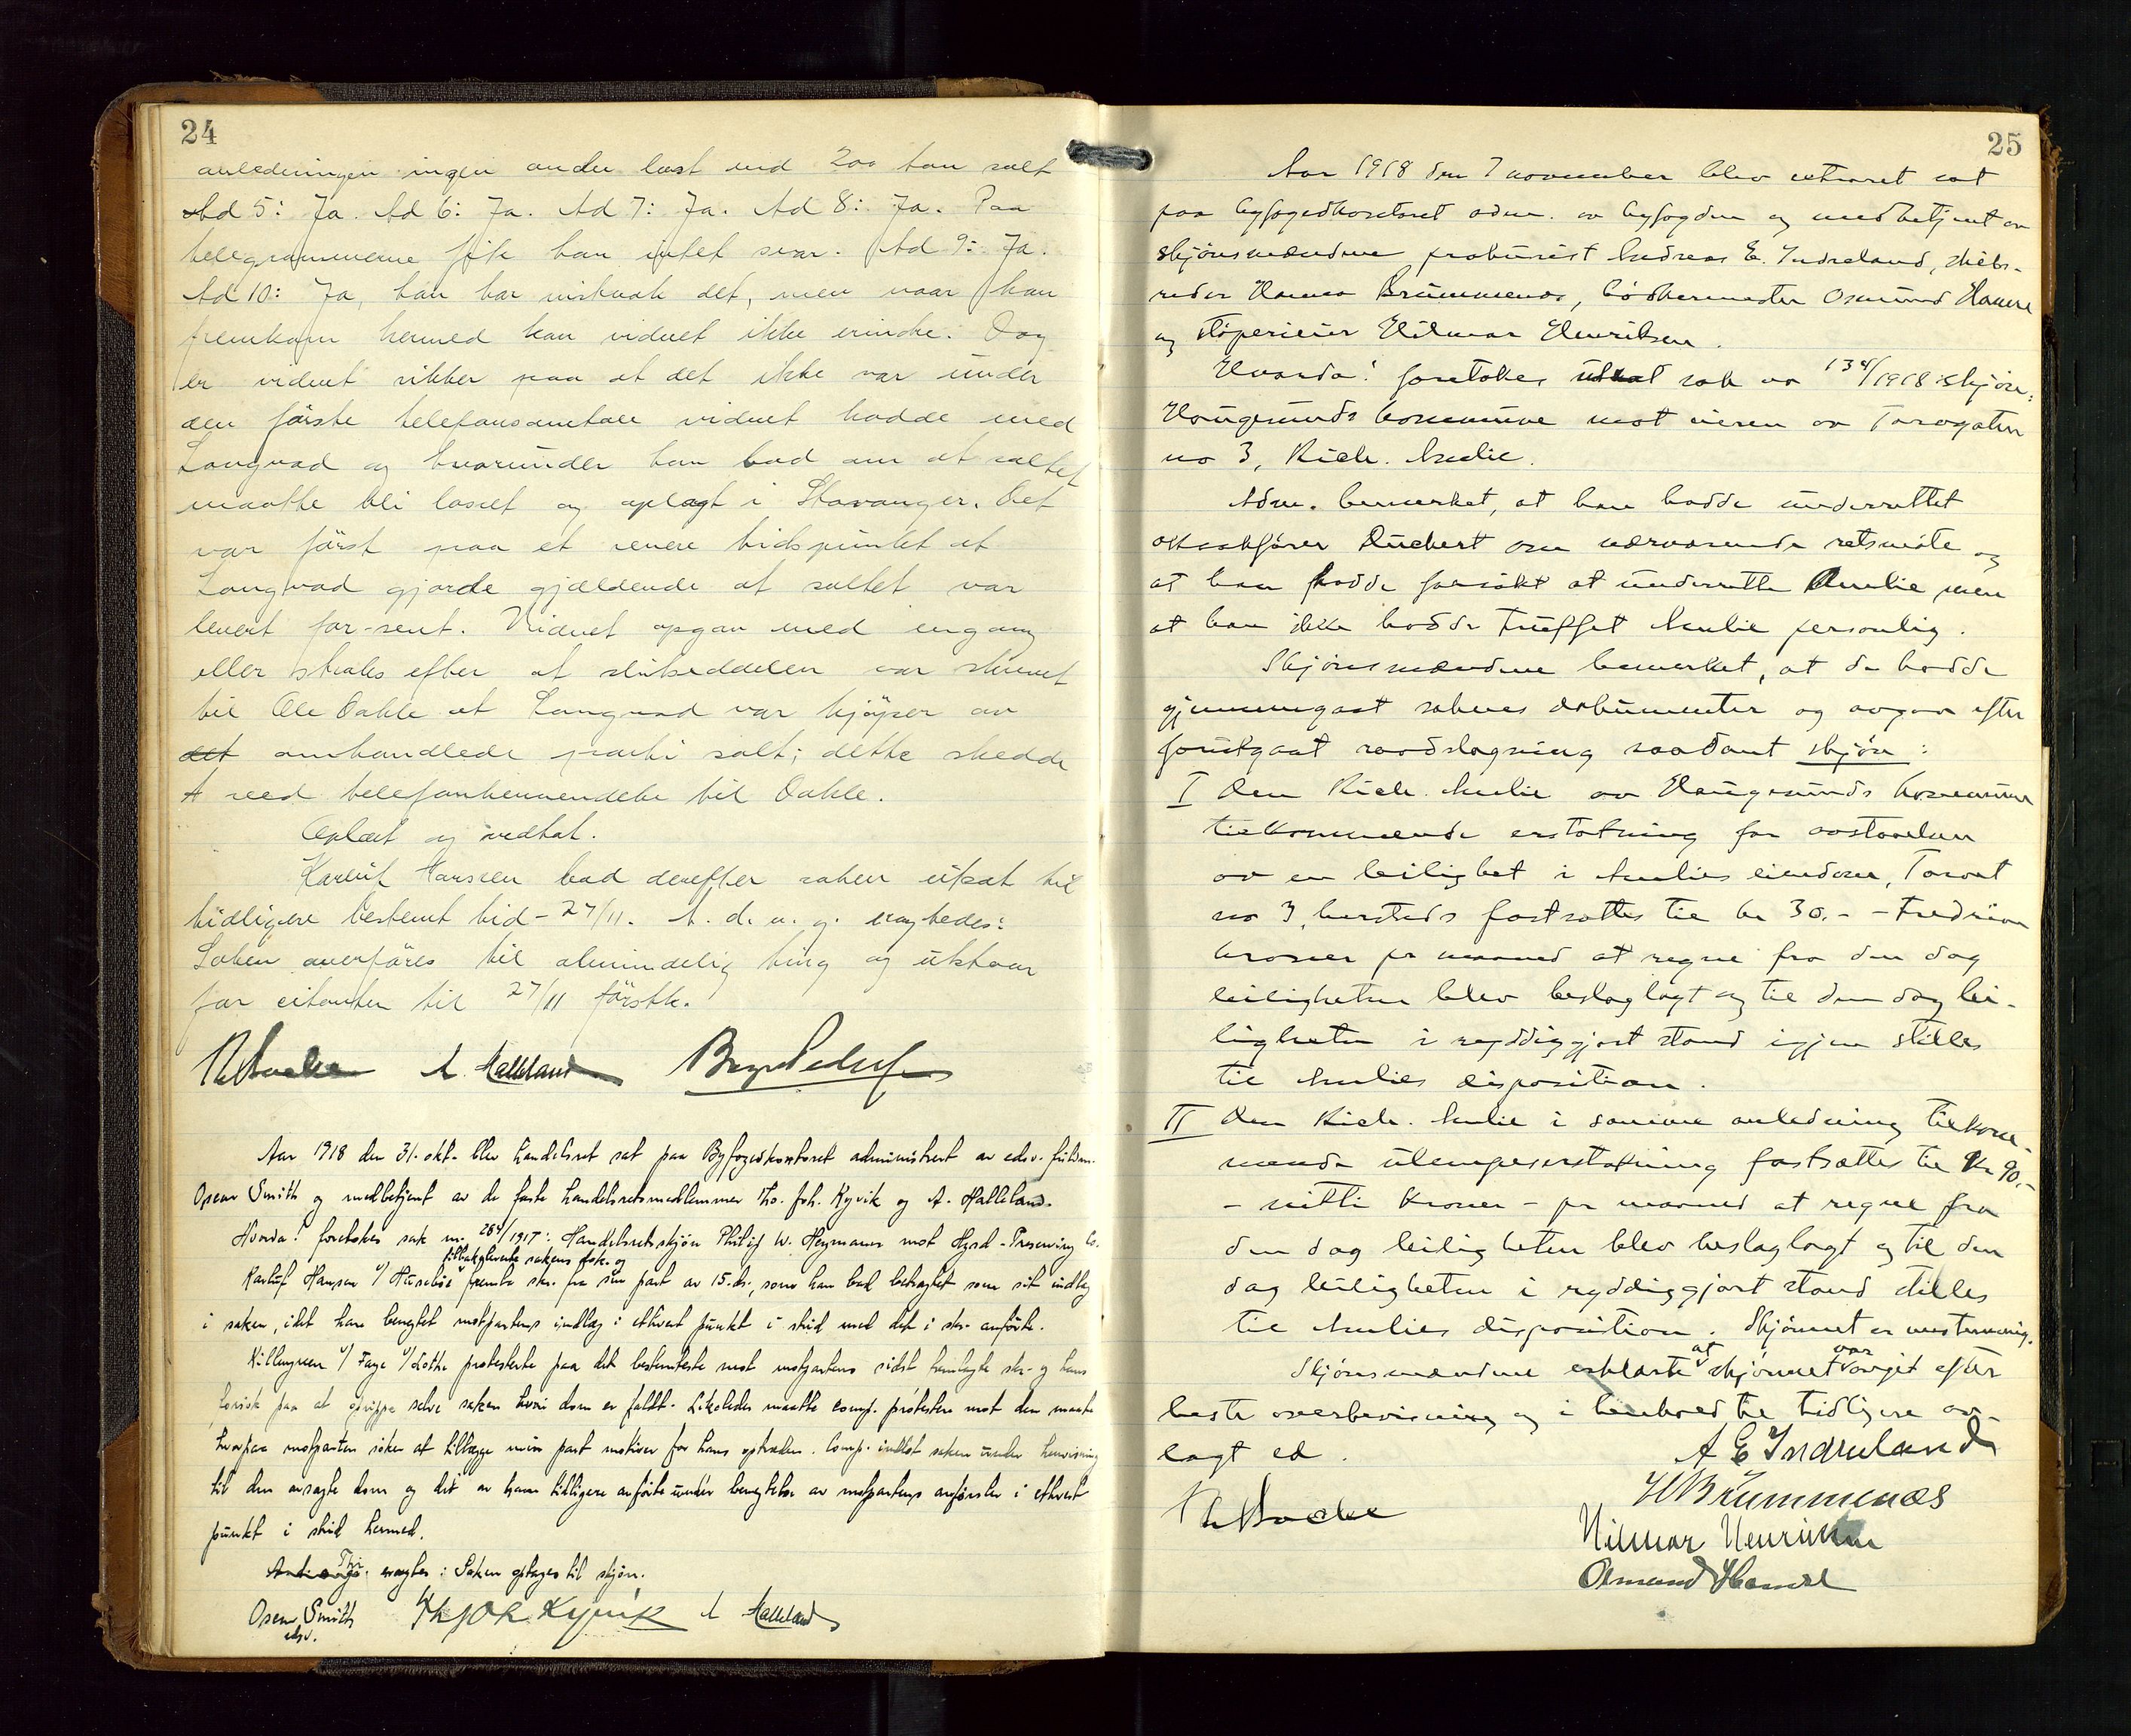 24
anledningen ingen anden last end 200 ton salt
Ad 5: Ja. Ad 6: Ja. Ad 7: Ja. Ad 8: Ja. Paa
telegrammerne fik han intet svar. Ad 9: Ja.
Ad 10: Ja, han har mistænkt det, men naar han
fremkom hermed kan vidnet ikke erindre. Dog
er vidnet sikker paa at det ikke var under
den første telefonsamtale vidnet hadde med
Langvad og hvorunder han bad om at saltet
maatte bli losset og oplagt i Stavanger. Det
var først paa et senere tidspunkt at
Langvad gjorde gjældende at saltet var
levert for sent. Vidnet opgav med engang
eller straks efter at slutseddelen var skrevet
til Ole Dahle at Langvad var kjøper av
det omhandlede parti salt; dette skedde
ved telefonhenvendelse til Dahle.
Oplæst og vedtat.
Karluf Hansen bad derefter saken utsat til
tidligere bestemt tid - 27/11. A. d. u. g. eragtedes:
Saken overføres til almindelig ting og utstaar
for citanten til 27/11 førstk.
A. Halleland
Aar 1918 den 31. okt. blev handelsret sat paa Byfogedkontoret administrert av edsv. fuldm.
Oscar Smith og medbetjent av de faste handelsretsmedlemmer Tho. Joh. Kyvik og A. Halleland.
Hvorda: foretokes sak nr. 284/1917: Handelsretsskjøn Philip W. Heymann mot Hgsd. Preserving Co.
tilbakeleverte sakens dok. og
Karluf Hansen f/ Huseboe fremla skr. fra sin part av 15. ds., som han bad betragtet som sit indlæg
i saken, idet han benegtet motpartens indlæg i ethvert punkt i strid med det i skr. anførte.
Killengreen f/ Faye f/ Lothe protesterte paa det bestemteste mot motpartens sidst fremlagte skr. og hans
forsøk paa at oprippe selve saken hvori dom er faldt. Likeledes maatte comp. protestere mot den maate
hvorpaa motparten søker at tillægge min part motiver for hans optræden. Comp. indlot saken under henvisning
til den avsagte dom og det av ham tidligere anførte under benegtelse av motpartens anførsler i ethvert
punkt i strid hermed.
eragtes: Saken optages til skjøn.
Oscar Smith Th Joh Kyvik A Halleland
edsv.
25
Aar 1918 den 7 november blev extraret sat
paa byfogedkontoret adm. av byfogden og medbetjent av
skjønsmændene prokurist Andreas E. Indreland, skibs-
reder Hannes Brummenæs, bødkermester Osmund Hamre
og støperieier Hilmar Henriksen.
Hvorda: foretokes utsat sak no 134/1918: skjøn:
Haugesunds kommune mot eieren av Torvgaten
no 3, Rich. Amlie.
Adm. bemerket, at han hadde underrettet
o.r.sakfører Duckert om nærværende retsmøte og
at han hadde forsøkt at underrette Amlie men
at han ikke hadde truffet Amlie personlig.
Skjønsmændene bemerket, at de hadde
gjennemgaat sakens dokumenter og avgav efter
forutgaat raadslagning saadant skjøn:
I Den Rich. Amlie av Haugesunds kommune
tilkommende erstatning for avstaaelsen
av en leilighet i Amlies eiendom, Torvet
no 3, hersteds fastsættes til kr 30.- - tredive
kroner pr maaned at regne fra den dag
leiligheten blev beslaglagt og til den dag lei-
ligheten i ryddiggjort stand igjen stilles
til Amlies disposition.
II Den Rich. Amlie i samme anledning tilkom-
mende ulempeserstatning fastsættes til Kr 90.-
- nitti kroner - pr maaned at regne fra
den dag leiligheten blev beslaglagt og til den
dag leiligheten i ryddiggjort stand stilles
til Amlies disposition. Skjønnet er enstemmig.
Skjønsmændene erklærte at skjønnet var avgit efter
beste overbevisning og i henhold til tidligere av-
lagt ed.
A E Indreland
H Brummenæs
Hilmar Henriksen
Osmund Hamre